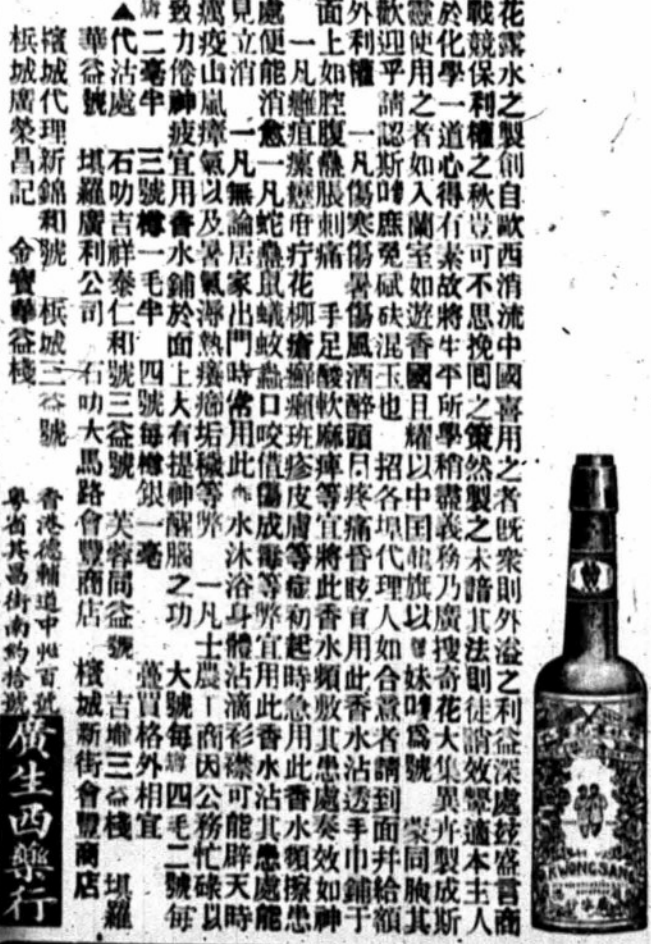 花露水之製創自歐西消流中國喜用之者既衆則外溢之利益深處茲盛言商
戰競保利權之秋豈可不思挽囘之策然製之未諳其法則徒誚效顰適本主人
於化學一道心得有素故將生平所學稍盡義務乃廣搜奇花大集異卉製成斯
靈使用之者如入蘭室如遊香國且耀以中国龍旗以妹嘜爲號 蒙同胞其
歡迎乎請認斯嘜庶免碔砆混玉也 招各埠代理人如合意者請到面幷給額
外利權 一凡傷寒傷暑傷風酒醉頭目疼痛昏眩宜用此香水沾透手巾鋪于
面上如腔腹鼓脹刺痛 手足酸軟麻痺等宜將此香水頻敷其患處奏效如神
一凡癰疽瘰癧疳疔花柳瘡癬癩班疹皮膚等症初起時急用此香水頻擦患
處便能消愈一凡蛇蟲鼠蟻蚊蟲口咬借傷成毒等弊宜用此香水沾其患處能
見立消 一凡無論居家出門時常用此香水沐浴身體沾滴衫襟可能辟天時
癘疫山嵐瘴氣以及暑氣溽熱癢瘡垢穢等弊 一凡士農工商因公務忙碌以
致力倦神疲宜用香水鋪於面上大有提神醒腦之功 大號每罇四毛二號每
罇二毫半 三號罇一毛半 四號每罇銀一毫 躉買格外相宜
▲代沽處 石叻吉祥泰仁和號三益號 芙蓉同益號 吉埔三益棧 埧羅
華益號 埧羅廣利公司 石叻大馬路會豐商店 檳城新街會豐商店
檳城代理新錦和號 梹城三益號
梹城廣榮昌記 金寶華益棧
香港德輔道中百號
粵省其昌街南約拾號
廣生西藥行
KWONGSANG